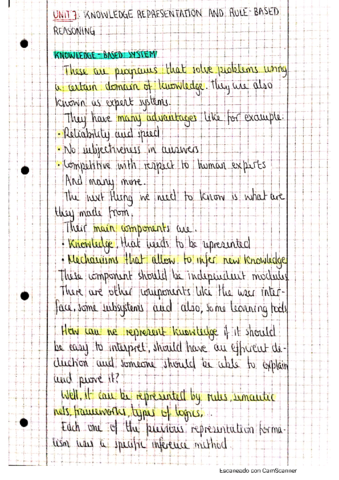 UNIT 3. KNOWLEDGE REPRESENTATION AND RULE-BASED
REASONING
KNOWLEDGE-BASED SYSTEM
These are programs that solve problems using
a certain domain of knowledge. They are also
known as expert systems.
They have many advantages like for example.
· Reliability and speed
· No subjectiveness in answers
· Competitive with respect to human experts
And many more.
The next thing we need to know is what are
they made from.
Their main components are.
· Knowledge, that needs to be represented
· Mechanisms that allow to infer new knowledge
These component should be independent modules
There are other components like the user inter-
face, some subsystems and also, some learning tools
How can we represent knowledge if it should
be easy to interpret, should have an efficient de-
duction and someone should be able to explain
and prove it?
Well, it can be represented by rules, semantic
nets, frameworks, types of logics,..
Each one of the previous representation forma-
lism has a specific inference method.
Escaneado con CamScanner